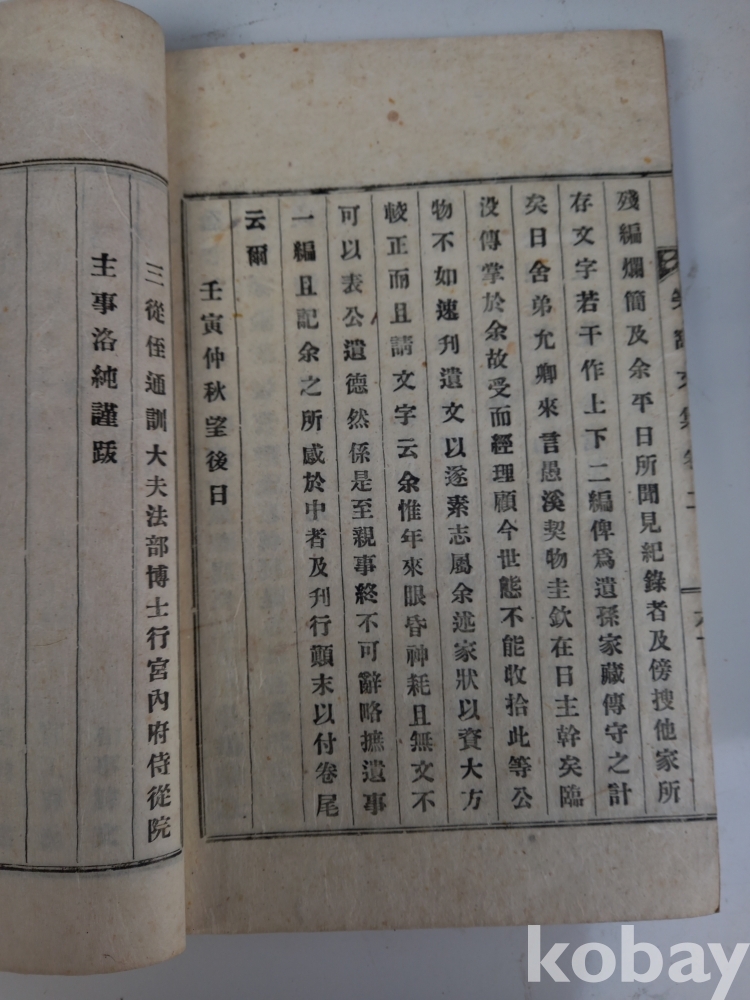 殘編爛簡及余平日所聞見紀錄者及傍搜他家所
存文字若干作上下二編俾爲遺孫家藏傳守之計
矣日舍弟允卿來言愚溪契物圭欽在日主幹矣臨
沒傳掌於余故受而經理顧今世態不能收拾此等公
物不如速刊遺文以遂素志屬余述家狀以資大方
較正而且請文字云余惟年來眼昏神耗且無文不
可以表公遺德然係是至親事終不可辭略摭遺事
一編且記余之所感於中者及刊行顚末以付卷尾
云爾
壬寅仲秋望後日
三從侄通訓大夫法部博士行宮內府侍從院
主事洛純謹跋
kobay